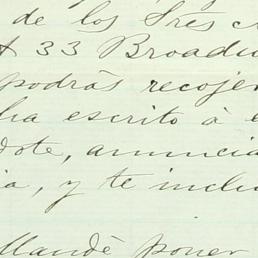 de los Sres
33 Broadw
podrás recojer
ha escrito á e
dote, anuncia
ia, y te inclu
Mandé poner